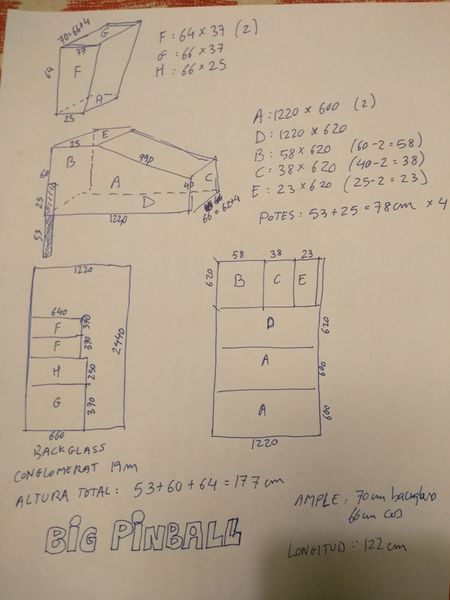 70=66+4
G
37
F
64
A
25
F: 64×37 (2)
G: 66×37
H: 66×25
E
25
B
990
C
60
A
40
25
D
1220
66=62+4
53
A: 1220×600 (2)
D: 1220×620
B: 58×620 (60-2=58)
C: 38×620 (40-2=38)
E: 23×620 (25-2=23)
POTES: 53+25=78cm ×4
1220
640
F 370
F 370
H 250
G 370
2440
660
BACKGLASS
58 38 23
620
B C E
D 620
A 600
A 600
1220
CONGLOMERAT 19m
ALTURA TOTAL: 53+60+64=177cm
BIG PINBALL
AMPLE: 70cm
66cm cos
LONGITUD: 122cm